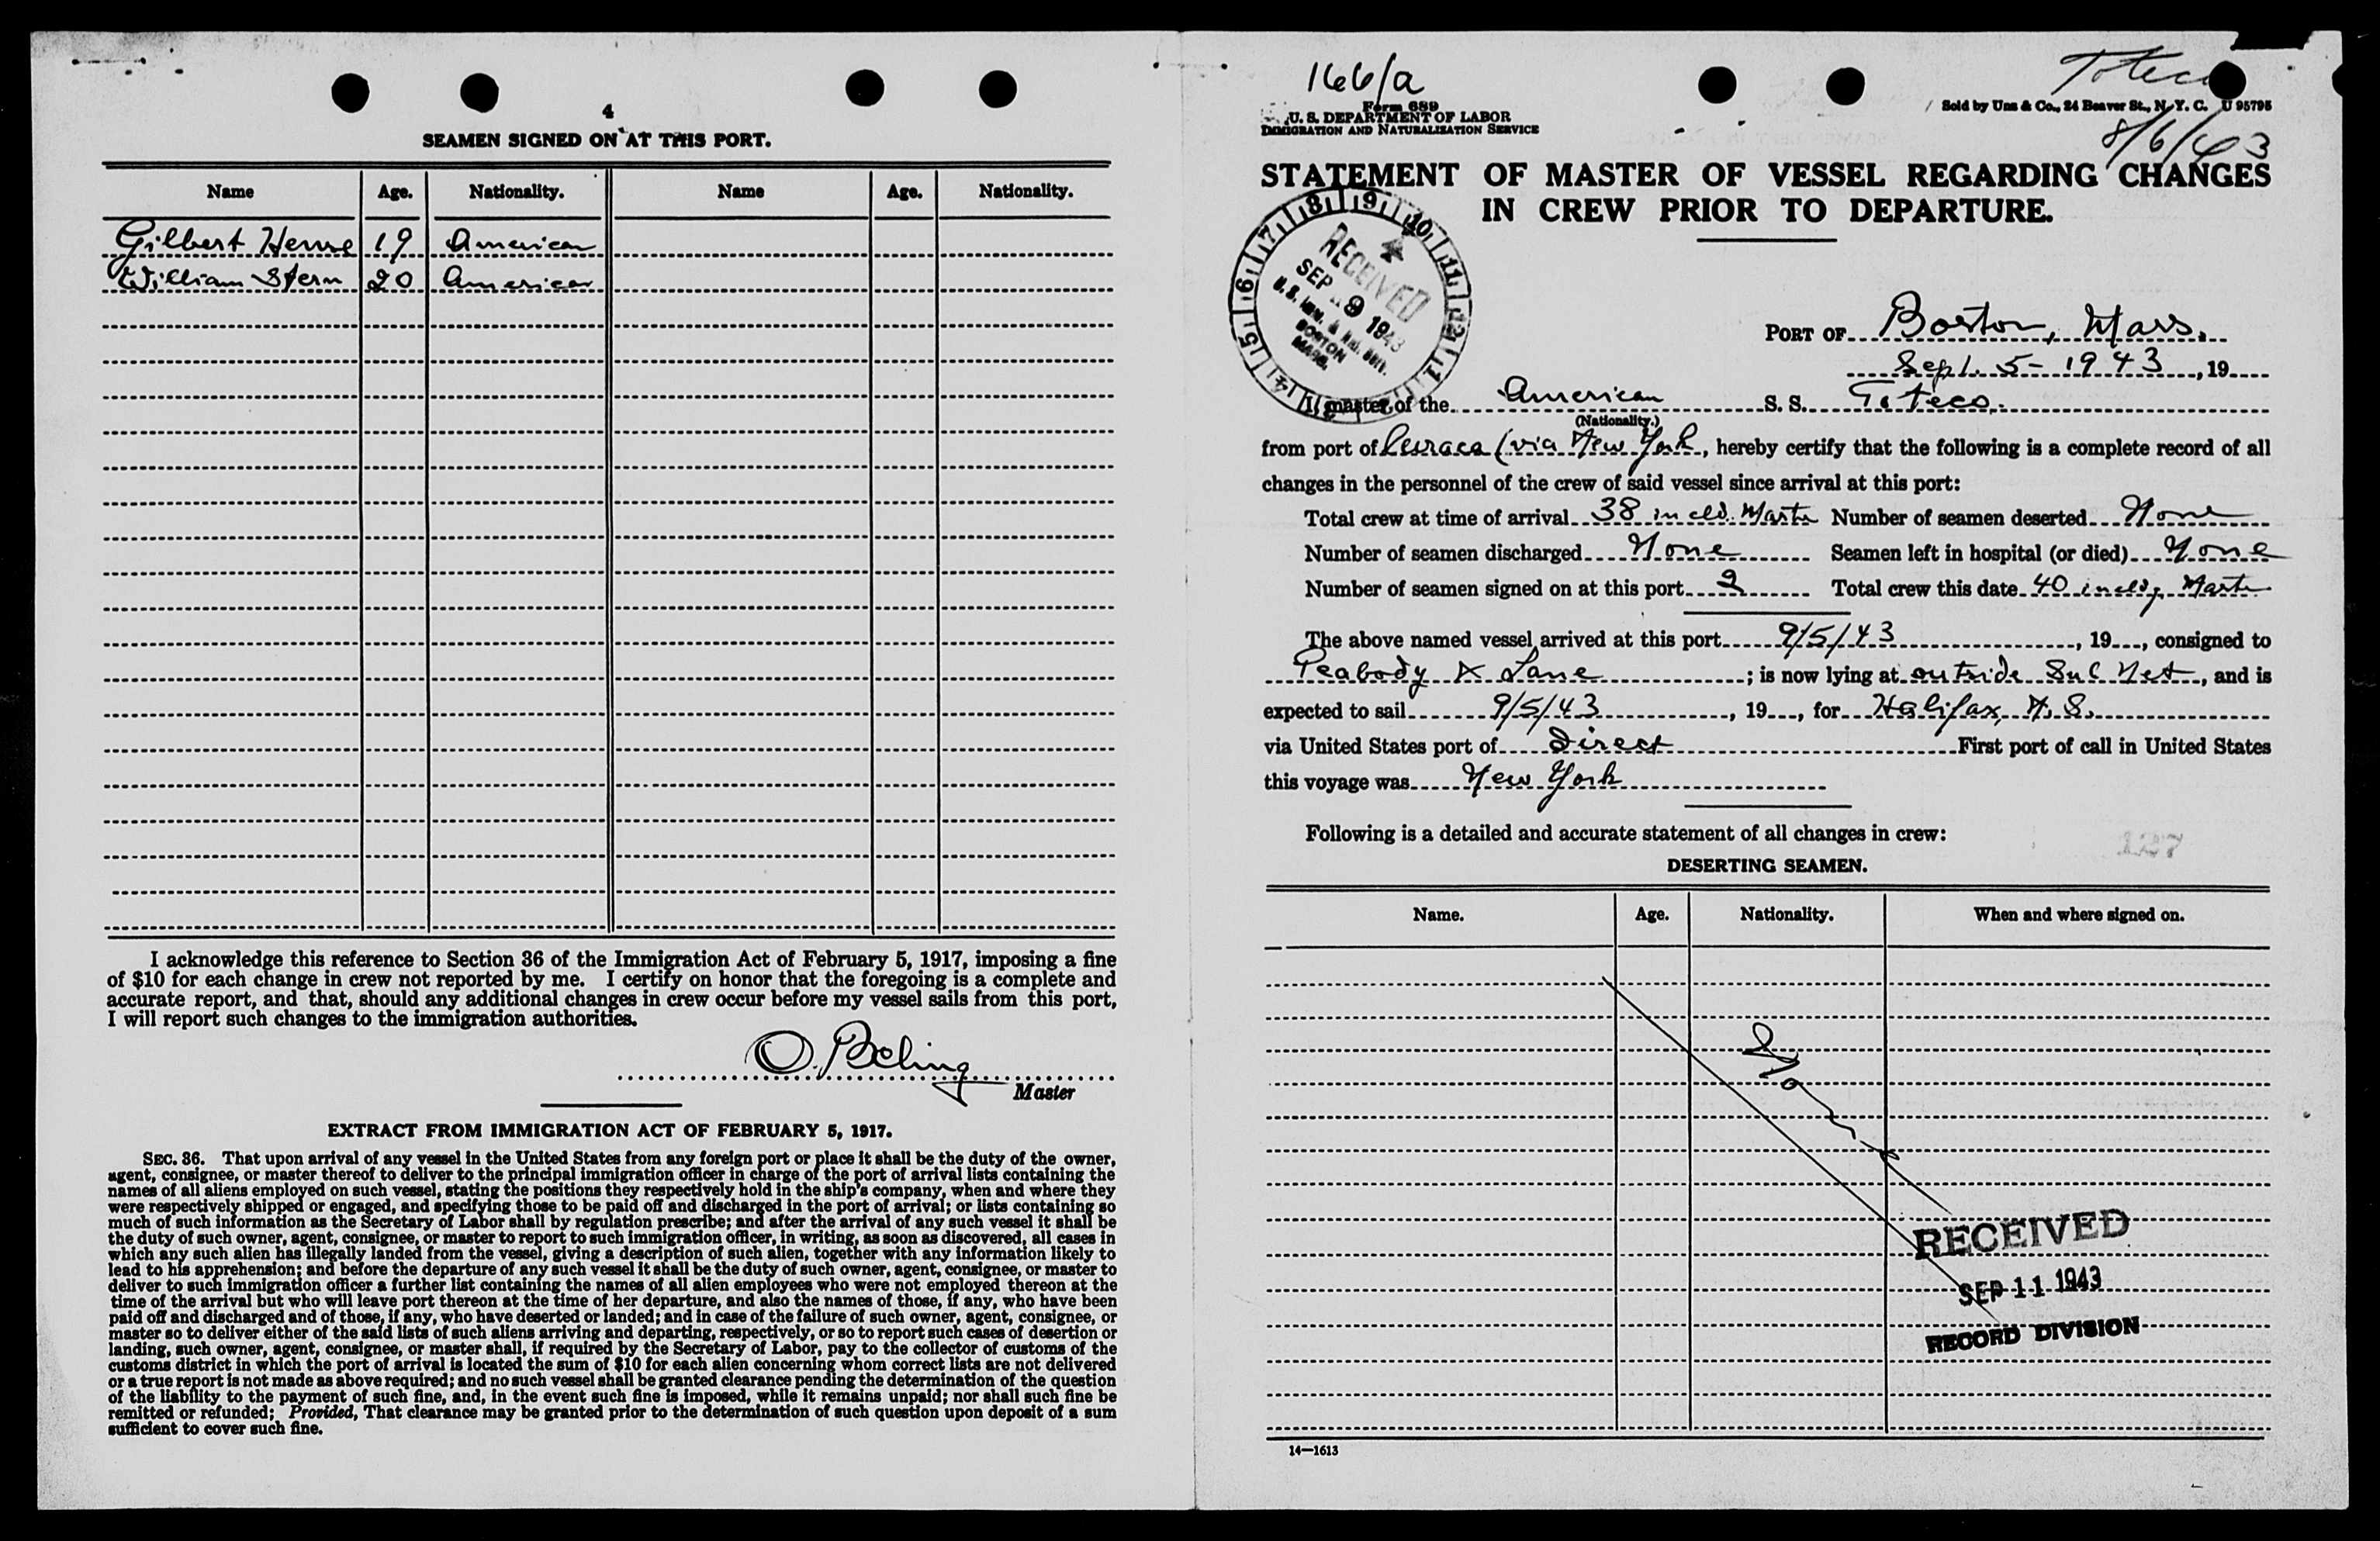 4
SEAMEN SIGNED ON AT THIS PORT.
Name Age. Nationality. Name Age. Nationality.
Gilbert 19 American
William Stern 20 American
I acknowledge this reference to Section 36 of the Immigration Act of February 5, 1917, imposing a fine
of $10 for each change in crew not reported by me. I certify on honor that the foregoing is a complete and
accurate report, and that, should any additional changes in crew occur before my vessel sails from this port,
I will report such changes to the immigration authorities.
O. Beling
Master
EXTRACT FROM IMMIGRATION ACT OF FEBRUARY 5, 1917.
SEC. 36. That upon arrival of any vessel in the United States from any foreign port or place it shall be the duty of the owner,
agent, consignee, or master thereof to deliver to the principal immigration officer in charge of the port of arrival lists containing the
names of all aliens employed on such vessel, stating the positions they respectively hold in the ship's company, when and where they
were respectively shipped or engaged, and specifying those to be paid off and discharged in the port of arrival; or lists containing so
much of such information as the Secretary of Labor shall by regulation prescribe; and after the arrival of any such vessel it shall be
the duty of such owner, agent, consignee, or master to report to such immigration officer, in writing, as soon as discovered, all cases in
which any such alien has illegally landed from the vessel, giving a description of such alien, together with any information likely to
lead to his apprehension; and before the departure of any such vessel it shall be the duty of such owner, agent, consignee, or master to
deliver to such immigration officer a further list containing the names of all alien employees who were not employed thereon at the
time of the arrival but who will leave port thereon at the time of her departure, and also the names of those, if any, who have been
paid off and discharged and of those, if any, who have deserted or landed; and in case of the failure of such owner, agent, consignee, or
master so to deliver either of the said lists of such aliens arriving and departing, respectively, or so to report such cases of desertion or
landing, such owner, agent, consignee, or master shall, if required by the Secretary of Labor, pay to the collector of customs of the
customs district in which the port of arrival is located the sum of $10 for each alien concerning whom correct lists are not delivered
or a true report is not made as above required; and no such vessel shall be granted clearance pending the determination of the question
of the liability to the payment of such fine, and, in the event such fine is imposed, while it remains unpaid; nor shall such fine be
remitted or refunded; Provided, That clearance may be granted prior to the determination of such question upon deposit of a sum
sufficient to cover such fine.
166/a
Toteco
Form 689
U. S. DEPARTMENT OF LABOR
IMMIGRATION AND NATURALIZATION SERVICE
Sold by Unz & Co., 24 Beaver St., N. Y. C. U 95795
8/6/43
STATEMENT OF MASTER OF VESSEL REGARDING CHANGES
IN CREW PRIOR TO DEPARTURE.
RECEIVED
SEP 9 1943
BOSTON
MASS.
PORT OF Boston, Mass.
Sept. 5- 1943, 19
master of the American S. S. Toteco.
(Nationality.)
from port of (via New York, hereby certify that the following is a complete record of all
changes in the personnel of the crew of said vessel since arrival at this port:
Total crew at time of arrival 38 incld. Number of seamen deserted None
Number of seamen discharged None Seamen left in hospital (or died) None
Number of seamen signed on at this port 2 Total crew this date 40
The above named vessel arrived at this port 9/5/43, 19, consigned to
Peabody & Lane; is now lying at outside Sub Net, and is
expected to sail 9/5/43, 19, for Halifax, N.S.
via United States port of Direct First port of call in United States
this voyage was New York
Following is a detailed and accurate statement of all changes in crew:
127
DESERTING SEAMEN.
Name. Age. Nationality. When and where signed on.
None
RECEIVED
SEP 11 1943
RECORD DIVISION
14—1613